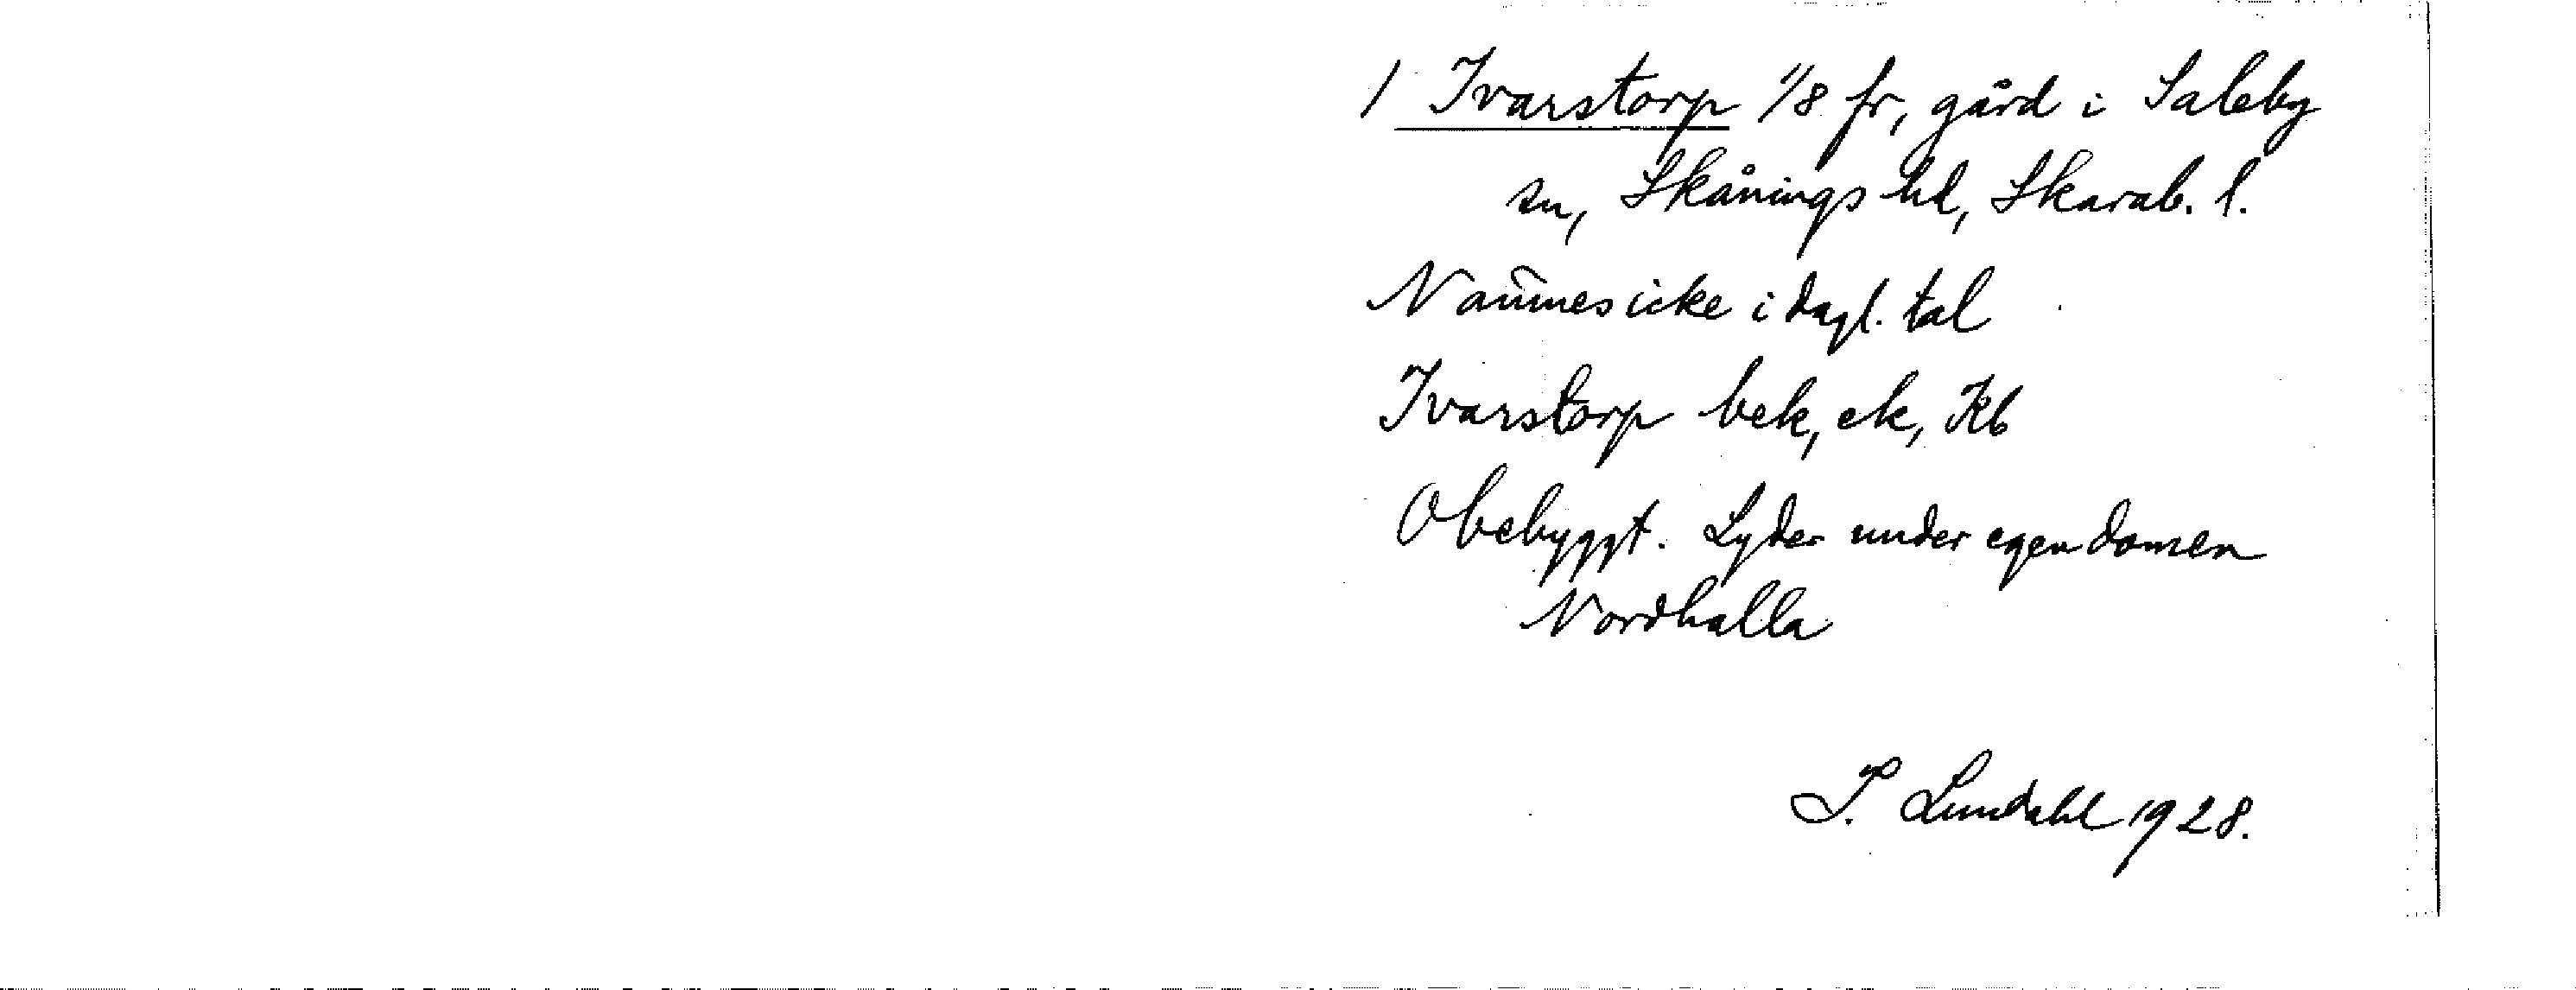 / Ivarstorp 1/8 fr, gård i Saleby
sn, Skånings hd, Skarab. l.
Nämnes icke i dagl. tal
Ivarstorp bek, ek, Kb
Obebyggt. Lyder under egendomen
Nordhalla
I. Lundahl 1928.